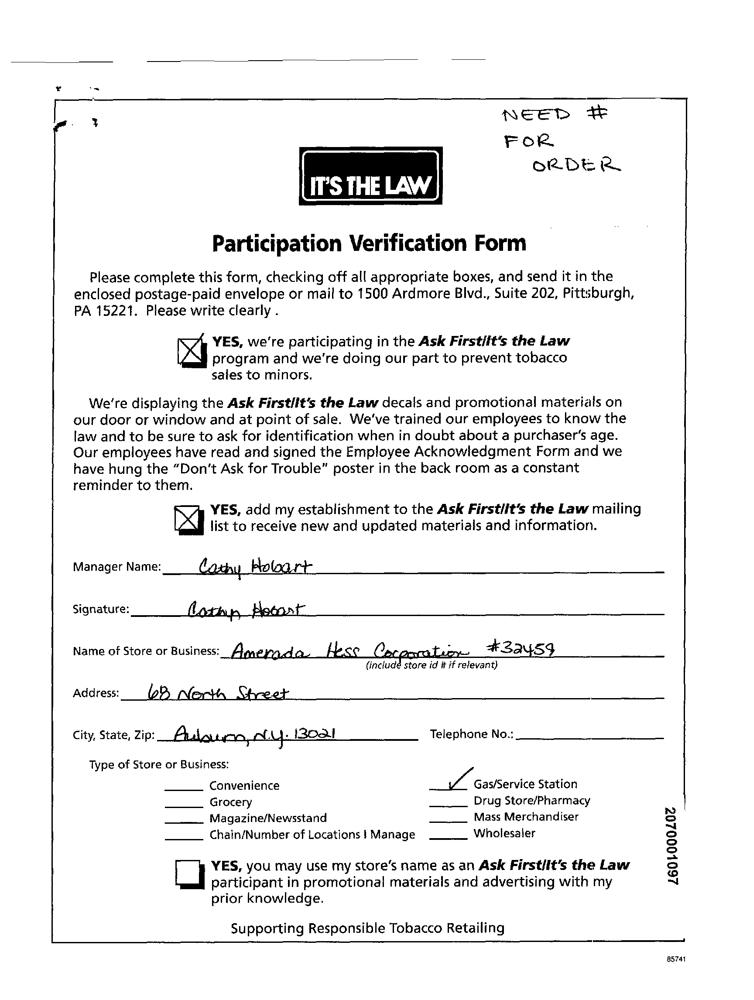 NEED #
FOR
ORDER
IT'S THE LAW
Participation Verification Form
Please complete this form, checking off all appropriate boxes, and send it in the
enclosed postage-paid envelope or mail to 1500 Ardmore Blvd., Suite 202, Pittsburgh,
PA 15221. Please write clearly .
YES, we're participating in the Ask First/It's the Law
program and we're doing our part to prevent tobacco
sales to minors.
We're displaying the Ask First/It's the Law decals and promotional materials on
our door or window and at point of sale. We've trained our employees to know the
law and to be sure to ask for identification when in doubt about a purchaser's age.
Our employees have read and signed the Employee Acknowledgment Form and we
have hung the "Don't Ask for Trouble" poster in the back room as a constant
reminder to them.
YES, add my establishment to the Ask First/It's the Law mailing
list to receive new and updated materials and information.
Manager Name: Cathy Hobart
Signature: Cathy Hobart
Name of Store or Business: Amerada Hess Corporation #32459
(include store id # if relevant)
Address: 68 North Street
City, State, Zip: Auburn, N.Y. 13021 Telephone No.:
Type of Store or Business:
Convenience Gas/Service Station
Grocery Drug Store/Pharmacy
Magazine/Newsstand Mass Merchandiser
Chain/Number of Locations I Manage Wholesaler
YES, you may use my store's name as an Ask First/It's the Law
participant in promotional materials and advertising with my
prior knowledge.
Supporting Responsible Tobacco Retailing
2070001097
85741